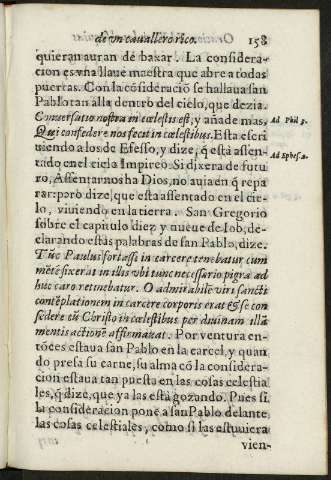 de vn cauallero rico.
158
quieran auran de baxar. La considera-
cion es vna llaue maestra que abre a todas
puertas. Con la cõsideraciõ se hallaua san
Pablo tan alla dentro del cielo, que dezia.
Conuersatio nostra in cœlis est, y añade mas,
Ad Phil 3.
Qui consedere nos fecit in cœlestibus. Esta escri
uiendo a los de Efesso, y dize, q̃ està assen-
Ad Ephes. 2.
tado en el cielo Impireo. Si dixera de futu
ro, Assentarnos ha Dios, no auia en q̃ repa
rar: pero dize, que esta assentado en el cie-
lo, viuiendo en la tierra. San Gregorio
sobre el capitulo diez y nueue de Iob, de-
clarando estas palabras de san Pablo, dize.
Tũc Paulus fortasse in carcere tenebatur cum
mẽte sixerat in illis vbi tunc necessario pigra ad
huc caro retinebatur. O admirabilẽ viri sancti
contẽplationem in carcere corporis erat & se con
sedere cũ Christo in cœlestibus per diuinam illã
mentis actionẽ affirmabat. Por ventura en-
tõces estaua san Pablo en la carcel, y quan
do presa su carne, su alma cõ la considera-
cion estaua tan puesta en las cosas celestia
les, q̃ dize, que ya las està gozando. Pues si
la consideracion pone a san Pablo delante
las cosas celestiales, como si las estuuiera
vien-